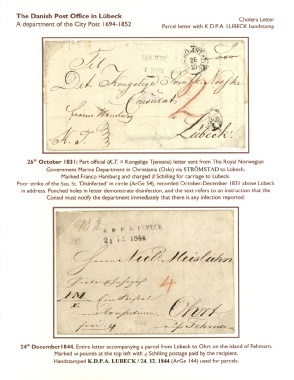 The Danish Post Office in Lübeck
A department of the City Post 1694-1852
Cholera Letter
Parcel letter with K.D.P.A. LUBECK handstamp
Till
Det Kongelige Norske
Consulat
franco Hamburg
K. T.
Lübeck.
2
26th October 1831: Part official (K.T. = Kongelige Tjeneste) letter sent from The Royal Norwegian
Government Marine Department in Christiania (Oslo) via STRÖMSTAD to Lübeck.
Marked Franco Hamburg and charged 2 Schilling for carriage to Lubeck.
Poor strike of the San. St. 'Disinfected' in circle (ArGe 54), recorded October-December 1831 above Lübeck
in address. Punched holes in letter demonstrate disinfection, and the text refers to an instruction that the
Consul must notify the department immediately that there is any infection reported.
K.D.P.A. LUBECK
24 12 1844
4
Ohrt
24th December 1844, Entire letter accompanying a parcel from Lübeck to Ohrt on the island of Fehmarn.
Marked at the top left with 4 Schilling postage paid by the recipient.
Handstamped K.D.P.A. LUBECK / 24. 12. 1844 (ArGe 144) used for parcels.